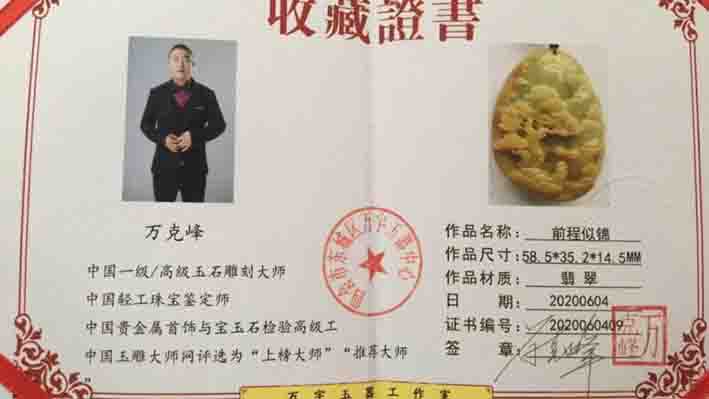 收藏證書
万克峰
中国一级/高级玉石雕刻大师
中国轻工珠宝鉴定师
中国贵金属首饰与宝玉石检验高级工
中国玉雕大师网评选为“上榜大师”“推荐大师
”
作品名称: 前程似锦
作品尺寸:58.5*35.2*14.5MM
作品材质: 翡翠
日 期: 20200604
证书编号: 2020060409
签 章:
万宝玉器工作室